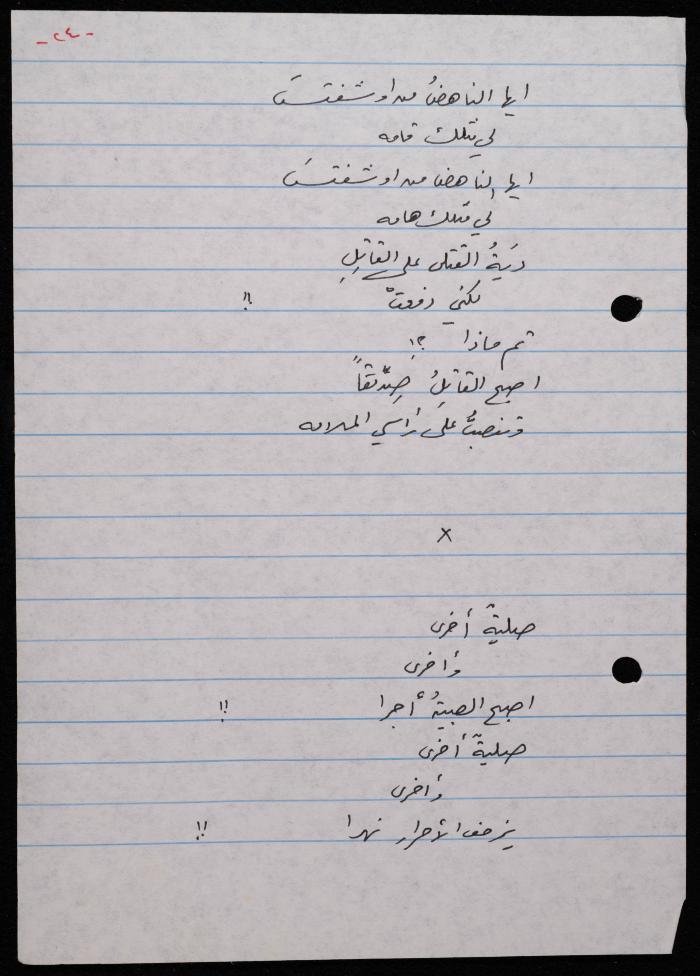 -٢٤-
ايها الناهضُ من اوشفتسَ
لي قتلك قامه
ايها الناهض من اوشفتسَ
لي قتلك هامه
ديَةُ القتلى على القاتِلِ
لكني دفعتْ !!
ثم ماذا ؟!
اصبح القاتِلُ صِدّيقاً
وتنصبُّ على رأسي الملامه
x
صليةٌ أخرى
وأخرى
اصبح الصبيةُ أجرا !!
صليةٌ أخرى
وأخرى
يزحف الأحرار نهرا !!